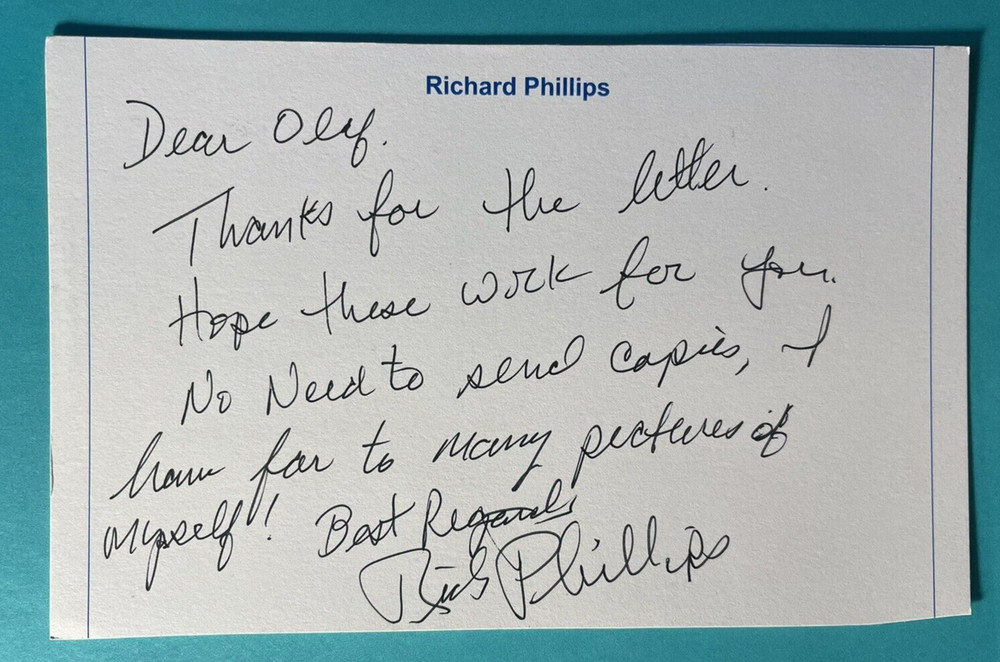 Richard Phillips
Dear Olaf.
Thanks for the letter.
Hope these work for you.
No Need to send copies, I
have far to many pictures of
myself! Best Regards
Rich Phillips